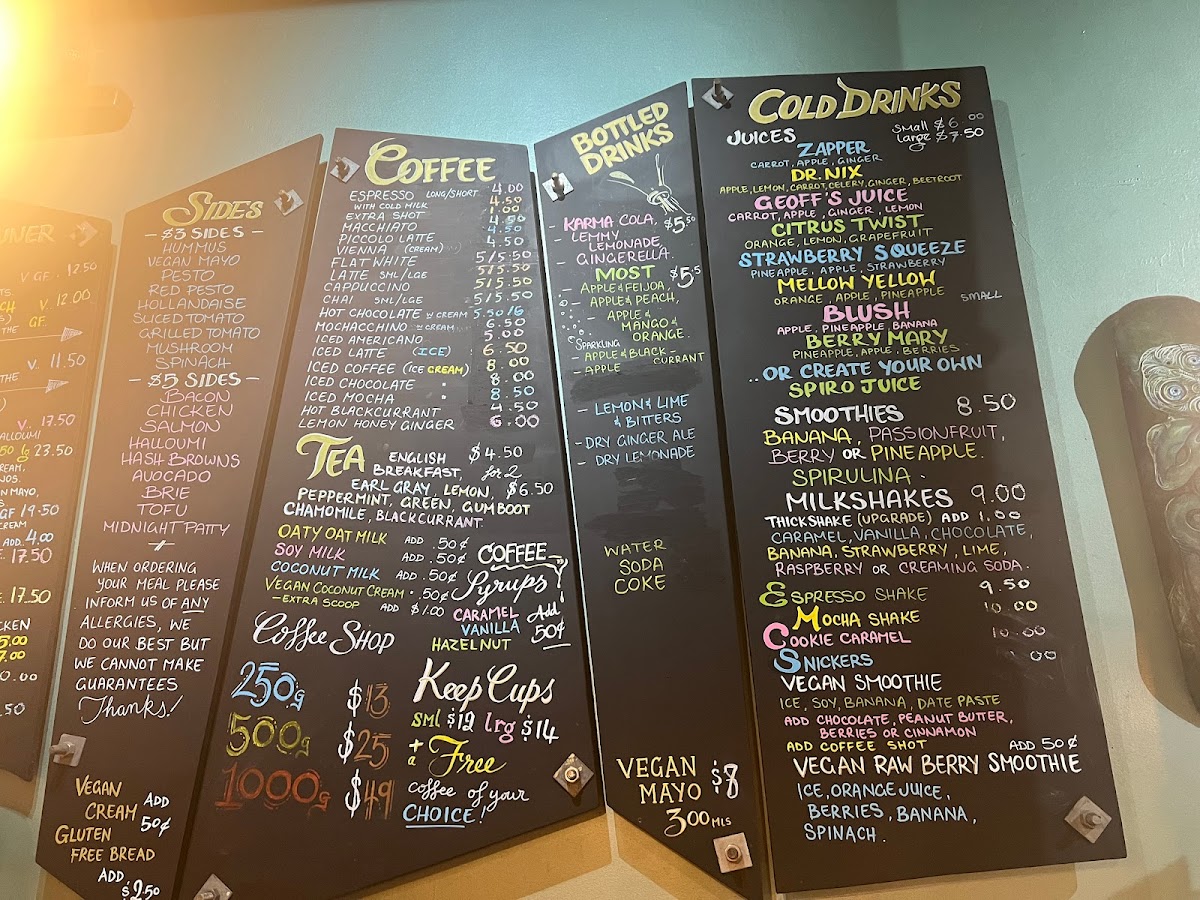 V GF. 12.50
V. 12.00
GF.
V. 11.50
V. 17.50
23.50
GF 19.50
ADD. 4.00
17.50
17.50
SIDES
- $3 SIDES -
HUMMUS
VEGAN MAYO
PESTO
RED PESTO
HOLLANDAISE
SLICED TOMATO
GRILLED TOMATO
MUSHROOM
SPINACH
- $5 SIDES -
BACON
CHICKEN
SALMON
HALLOUMI
HASH BROWNS
AVOCADO
BRIE
TOFU
MIDNIGHT PATTY
WHEN ORDERING
YOUR MEAL PLEASE
INFORM US OF ANY
ALLERGIES, WE
DO OUR BEST BUT
WE CANNOT MAKE
GUARANTEES
Thanks!
VEGAN
CREAM ADD
50¢
GLUTEN
FREE BREAD
ADD
$2.50
COFFEE
ESPRESSO LONG/SHORT 4.00
WITH COLD MILK 4.50
EXTRA SHOT 1.00
MACCHIATO 4.50
PICCOLO LATTE 4.50
VIENNA (CREAM) 4.50
FLAT WHITE 5/5.50
LATTE SML/LGE 5/5.50
CAPPUCCINO 5/5.50
CHAI SML/LGE 5/5.50
HOT CHOCOLATE W CREAM 5.50/6
MOCHACCHINO W CREAM 6.50
ICED AMERICANO 5.00
ICED LATTE (ICE) 6.50
ICED COFFEE (ICE CREAM) 8.00
ICED CHOCOLATE " 8.00
ICED MOCHA " 8.50
HOT BLACKCURRANT 4.50
LEMON HONEY GINGER 6.00
TEA ENGLISH $4.50
BREAKFAST, for 2
EARL GRAY, LEMON, $6.50
PEPPERMINT, GREEN, GUMBOOT
CHAMOMILE, BLACKCURRANT
OATY OAT MILK ADD .50¢
SOY MILK ADD .50¢
COCONUT MILK ADD .50¢
VEGAN COCONUT CREAM .50¢
- EXTRA SCOOP ADD $1.00
COFFEE
Syrups
CARAMEL Add
VANILLA 50¢
HAZELNUT
Coffee SHOP
250g $13
500g $25
1000g $49
Keep Cups
sml $12 lrg $14
+ a Free
coffee of your
CHOICE!
BOTTLED
DRINKS
KARMA COLA, $5.50
- LEMMY
LEMONADE,
- GINGERELLA.
MOST $5.5
- APPLE & FEIJOA,
- APPLE & PEACH,
- APPLE &
MANGO &
ORANGE.
SPARKLING
- APPLE & BLACK-
CURRANT
- APPLE
- LEMON & LIME
& BITTERS
- DRY GINGER ALE
- DRY LEMONADE
WATER
SODA
COKE
VEGAN
MAYO $8
300 MLS
COLD DRINKS
JUICES small $6.00
large $7.50
ZAPPER
CARROT, APPLE, GINGER
DR. NIX
APPLE, LEMON, CARROT, CELERY, GINGER, BEETROOT
GEOFF'S JUICE
CARROT, APPLE, GINGER, LEMON
CITRUS TWIST
ORANGE, LEMON, GRAPEFRUIT
STRAWBERRY SQUEEZE
PINEAPPLE, APPLE, STRAWBERRY
MELLOW YELLOW
ORANGE, APPLE, PINEAPPLE SMALL
BLUSH
APPLE, PINEAPPLE, BANANA
BERRY MARY
PINEAPPLE, APPLE, BERRIES
..OR CREATE YOUR OWN
SPIRO JUICE
SMOOTHIES 8.50
BANANA, PASSIONFRUIT,
BERRY OR PINEAPPLE.
SPIRULINA.
MILKSHAKES 9.00
THICKSHAKE (UPGRADE) ADD 1.00
CARAMEL, VANILLA, CHOCOLATE,
BANANA, STRAWBERRY, LIME,
RASPBERRY OR CREAMING SODA.
ESPRESSO SHAKE 9.50
MOCHA SHAKE 10.00
COOKIE CARAMEL 10.00
SNICKERS 00
VEGAN SMOOTHIE
ICE, SOY, BANANA, DATE PASTE
ADD CHOCOLATE, PEANUT BUTTER,
BERRIES OR CINNAMON
ADD COFFEE SHOT ADD 50¢
VEGAN RAW BERRY SMOOTHIE
ICE, ORANGE JUICE,
BERRIES, BANANA,
SPINACH.